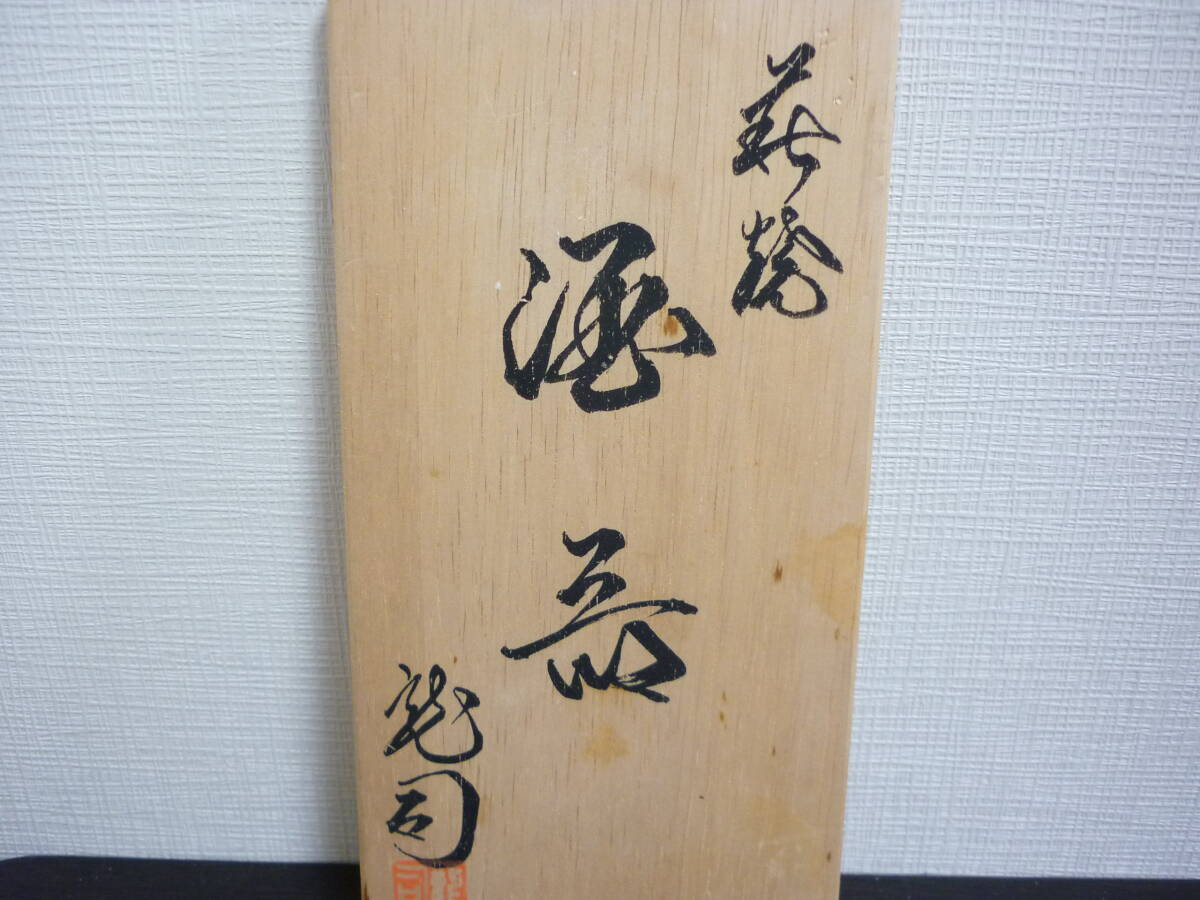 萩焼
酒器
龍司